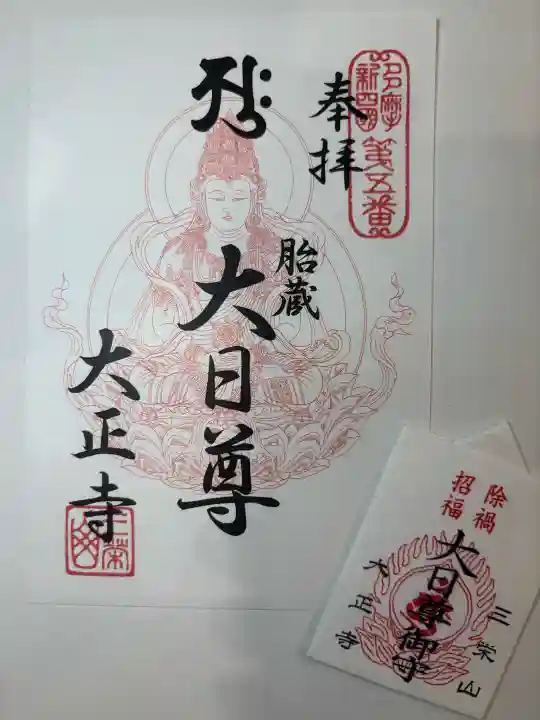 多摩
新四国
第五番
奉拝
胎蔵
大日尊
大正寺
三栄山
除禍
招福
三栄山
大日尊御守
大正寺